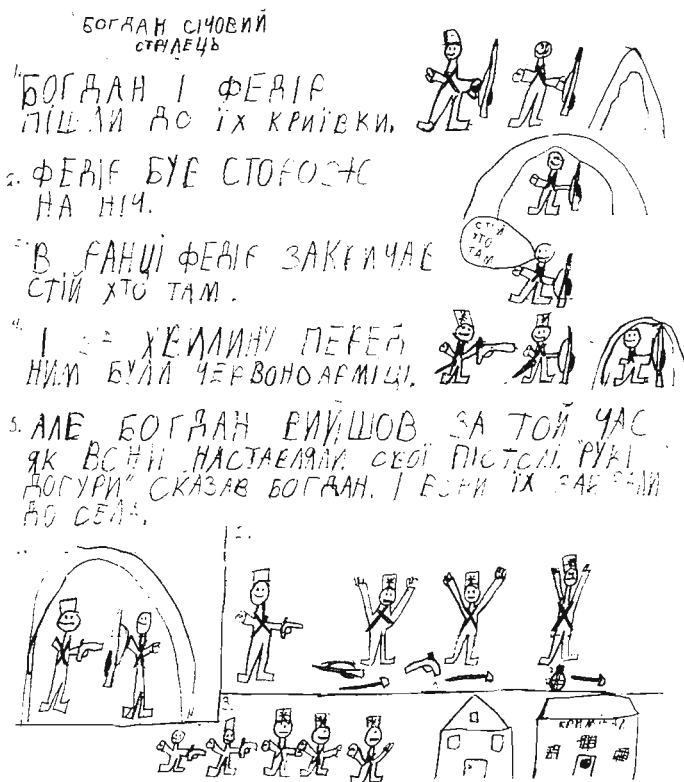 БОГДАН СІЧОВИЙ
СТРІЛЕЦЬ
1. БОГДАН І ФЕДІР
ПІШЛИ ДО ЇХ КРИЇВКИ.
2. ФЕДІР БУВ СТОРОЖ
НА НІЧ.
3. В РАНЦІ ФЕДІР ЗАКРИЧАВ
СТІЙ ХТО ТАМ.
СТІЙ
ХТО
ТАМ
4. І ЗА ХВИЛИНУ ПЕРЕД
НИМ БУЛИ ЧЕРВОНОАРМІЦІ.
5. АЛЕ БОГДАН ВИЙШОВ ЗА ТОЙ ЧАС
ЯК ВОНИ НАСТАВЛЯЛИ СВОЇ ПІСТОЛІ. "РУКИ
ДОГУРИ" СКАЗАВ БОГДАН. І ВОНИ ЇХ ЗАБРАЛИ
ДО СЕЛА.
1.
2.
3.